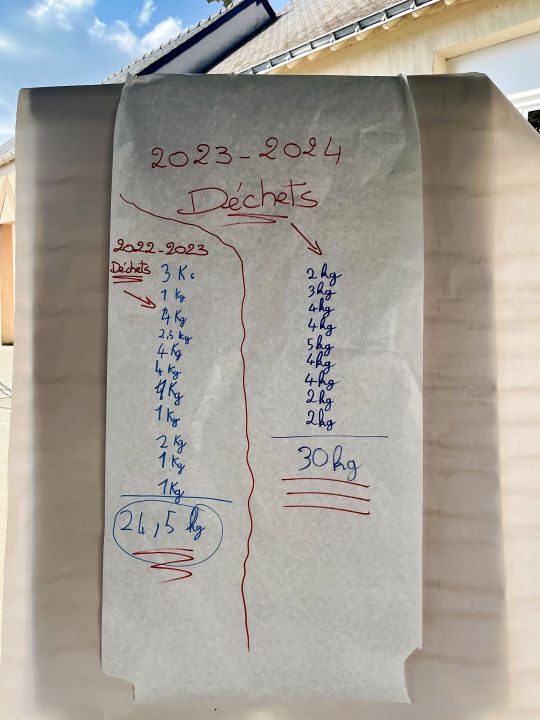 2023-2024
Déchets
2022-2023
Déchets
3 Kg
1 Kg
4 Kg
2,5 Kg
4 Kg
4 Kg
1 Kg
1 Kg
2 Kg
1 Kg
1 Kg
24,5 kg
2 kg
3 kg
4 kg
4 kg
5 kg
4 kg
4 kg
2 kg
2 kg
30 kg